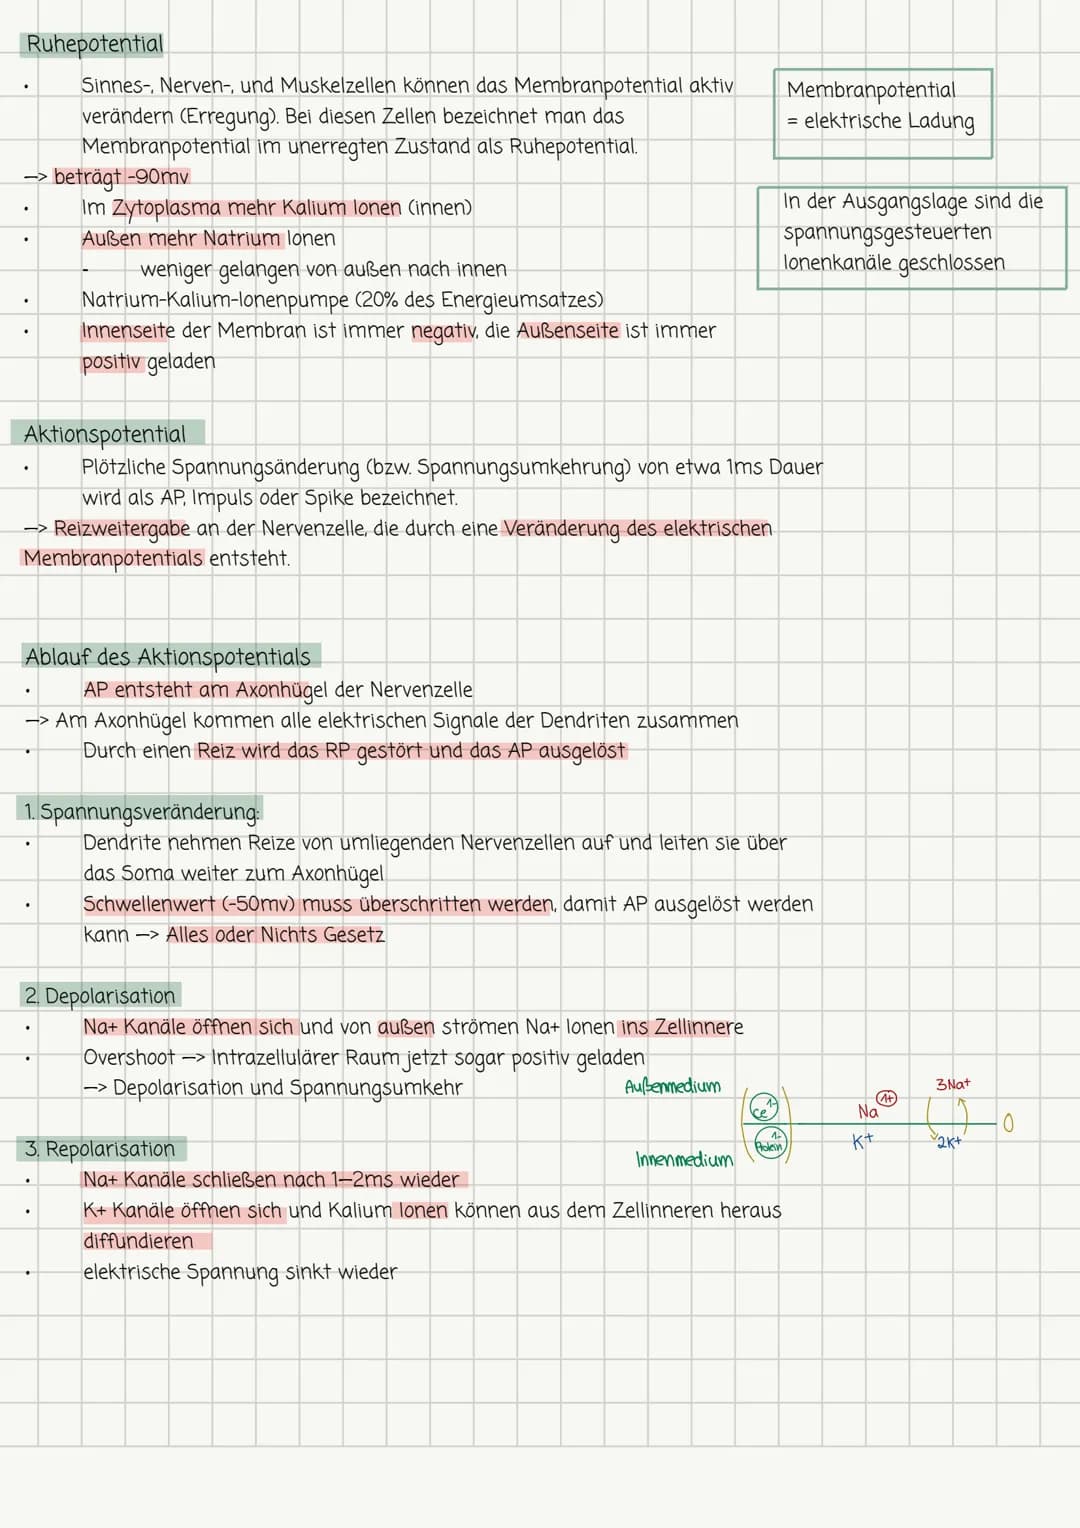 Ruhepotential
• Sinnes-, Nerven-, und Muskelzellen können das Membranpotential aktiv
verändern (Erregung). Bei diesen Zellen bezeichnet man das
Membranpotential im unerregten Zustand als Ruhepotential.
—> beträgt -90mv
• Im Zytoplasma mehr Kalium Ionen (innen)
• Außen mehr Natrium Ionen
- weniger gelangen von außen nach innen
• Natrium-Kalium-Ionenpumpe (20% des Energieumsatzes)
• Innenseite der Membran ist immer negativ, die Außenseite ist immer
positiv geladen
Membranpotential
= elektrische Ladung
In der Ausgangslage sind die
spannungsgesteuerten
Ionenkanäle geschlossen
Aktionspotential
• Plötzliche Spannungsänderung (bzw. Spannungsumkehrung) von etwa 1ms Dauer
wird als AP, Impuls oder Spike bezeichnet.
—> Reizweitergabe an der Nervenzelle, die durch eine Veränderung des elektrischen
Membranpotentials entsteht.
Ablauf des Aktionspotentials
• AP entsteht am Axonhügel der Nervenzelle
—> Am Axonhügel kommen alle elektrischen Signale der Dendriten zusammen
• Durch einen Reiz wird das RP gestört und das AP ausgelöst
1. Spannungsveränderung:
• Dendrite nehmen Reize von umliegenden Nervenzellen auf und leiten sie über
das Soma weiter zum Axonhügel
• Schwellenwert (-50mv) muss überschritten werden, damit AP ausgelöst werden
kann —> Alles oder Nichts Gesetz
2. Depolarisation
• Na+ Kanäle öffnen sich und von außen strömen Na+ Ionen ins Zellinnere
• Overshoot —> Intrazellulärer Raum jetzt sogar positiv geladen
—> Depolarisation und Spannungsumkehr
Außenmedium
Ce 1-
Na 1+
3Na+
Protein 1-
K+
2K+
Innenmedium
3. Repolarisation
• Na+ Kanäle schließen nach 1–2ms wieder
• K+ Kanäle öffnen sich und Kalium Ionen können aus dem Zellinneren heraus
diffundieren
• elektrische Spannung sinkt wieder